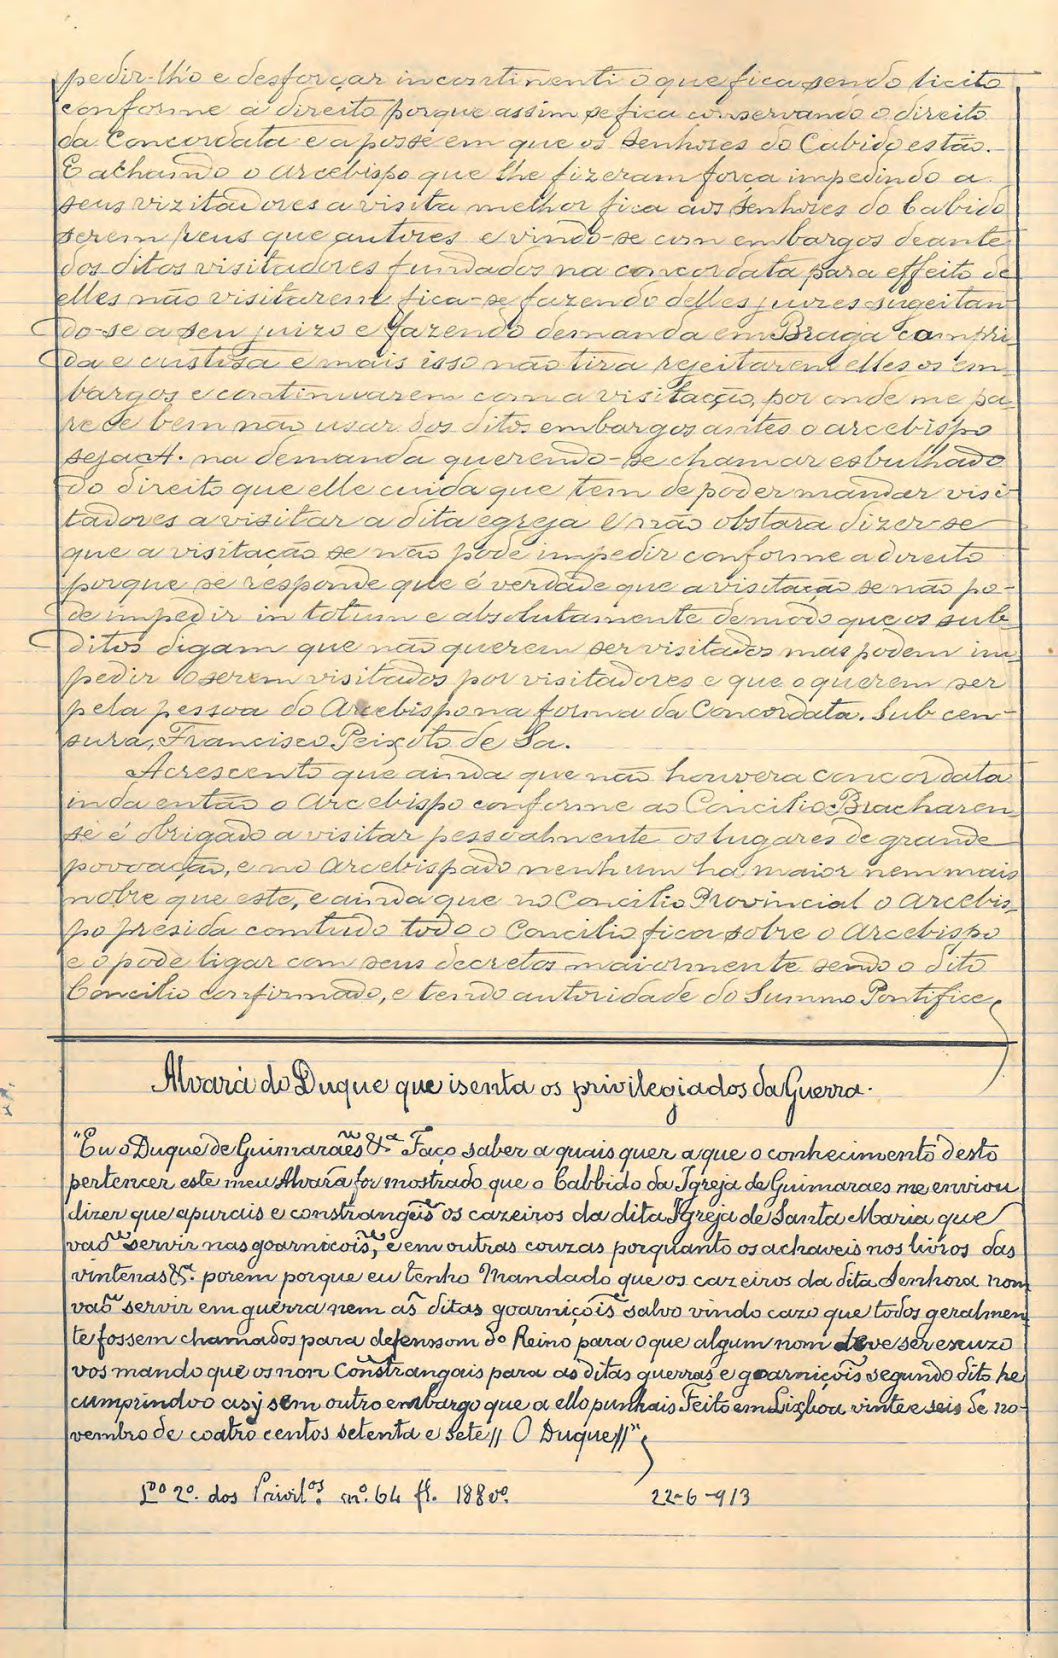 pedir-lh'o e desforçar incontinenti o que fica sendo licito
conforme a direito porque assim se fica conservando o direito
da Concordata e a posse em que os Senhores do Cabido estão.
E achando o Arcebispo que lhe fizeram força impedindo a
seus vizitadores a visita melhor fica aos Senhores do Cabido
serem reus que autores e vindo-se com embargos deante
dos ditos visitadores fundados na concordata para effeito de
elles não visitarem fica-se fazendo delles juizes sugeitan-
do-se a seu juizo e fazendo demanda em Braga compri-
da e custosa e mais isso não tira rejeitarem elles os em-
bargos e continuarem com a visitação, por onde me pa-
rece bem não usar dos ditos embargos antes o arcebispo
seja A. na demanda querendo-se chamar esbulhado
do direito que elle cuida que tem de poder mandar visi-
tadores a visitar a dita egreja e não obstará dizer-se
que a visitação se não pode impedir conforme a direito
porque se responde que é verdade que a visitação se não po-
de impedir in totum e absolutamente de modo que os sub-
ditos digam que não querem ser visitados mas podem im-
pedir o serem visitados por visitadores e que o querem ser
pela pessoa do Arcebispo na forma da Concordata. Sub cen-
sura, Francisco Peixoto de Sa.
Acrescento que ainda que não houvera concordata
inda então o Arcebispo conforme ao Concilio Bracharen-
se é obrigado a visitar pessoalmente os lugares de grande
povoação, e no Arcebispado nenhum há maior nem mais
nobre que este, e ainda que no Concilio Provincial o Arcebis-
po presida comtudo todo o Concilio fica sobre o Arcebispo
e o pode ligar com seus decretos maiormente sendo o dito
Concilio confirmado, e tendo autoridade do Summo Pontifice
Alvará do Duque que isenta os privilegiados da Guerra.
"Eu o Duque de Guimarães &ª Faço saber a quais quer a que o conhecimento desto
pertencer este meu Alvará for mostrado que o Cabbido da Igreja de Guimaraes me enviou
dizer que apurais e constrangeis os cazeiros da dita Igreja de Santa Maria que
vaõ servir nas goarnicois, e em outras couzas porquanto os achaveis nos livros das
vintenas &ª. porem porque eu tenho Mandado que os cazeiros da dita Senhora nom
vaõ servir em guerra nem as ditas goarniçois salvo vindo cazo que todos geralmen
te fossem chamados para defenssom do Reino para o que algum nom deve ser escuzo
vos mando que os non Constrangais para as ditas guerras e goarniçois segundo dito he
cumprindoo asy sem outro embargo que a ello punhais Feito em Lixboa vinte e seis de no-
vembro de coatro centos setenta e sete // O Duque //"
Lº 2º. dos Privilºs. nº. 64 fl. 188 vº. 22-6-913